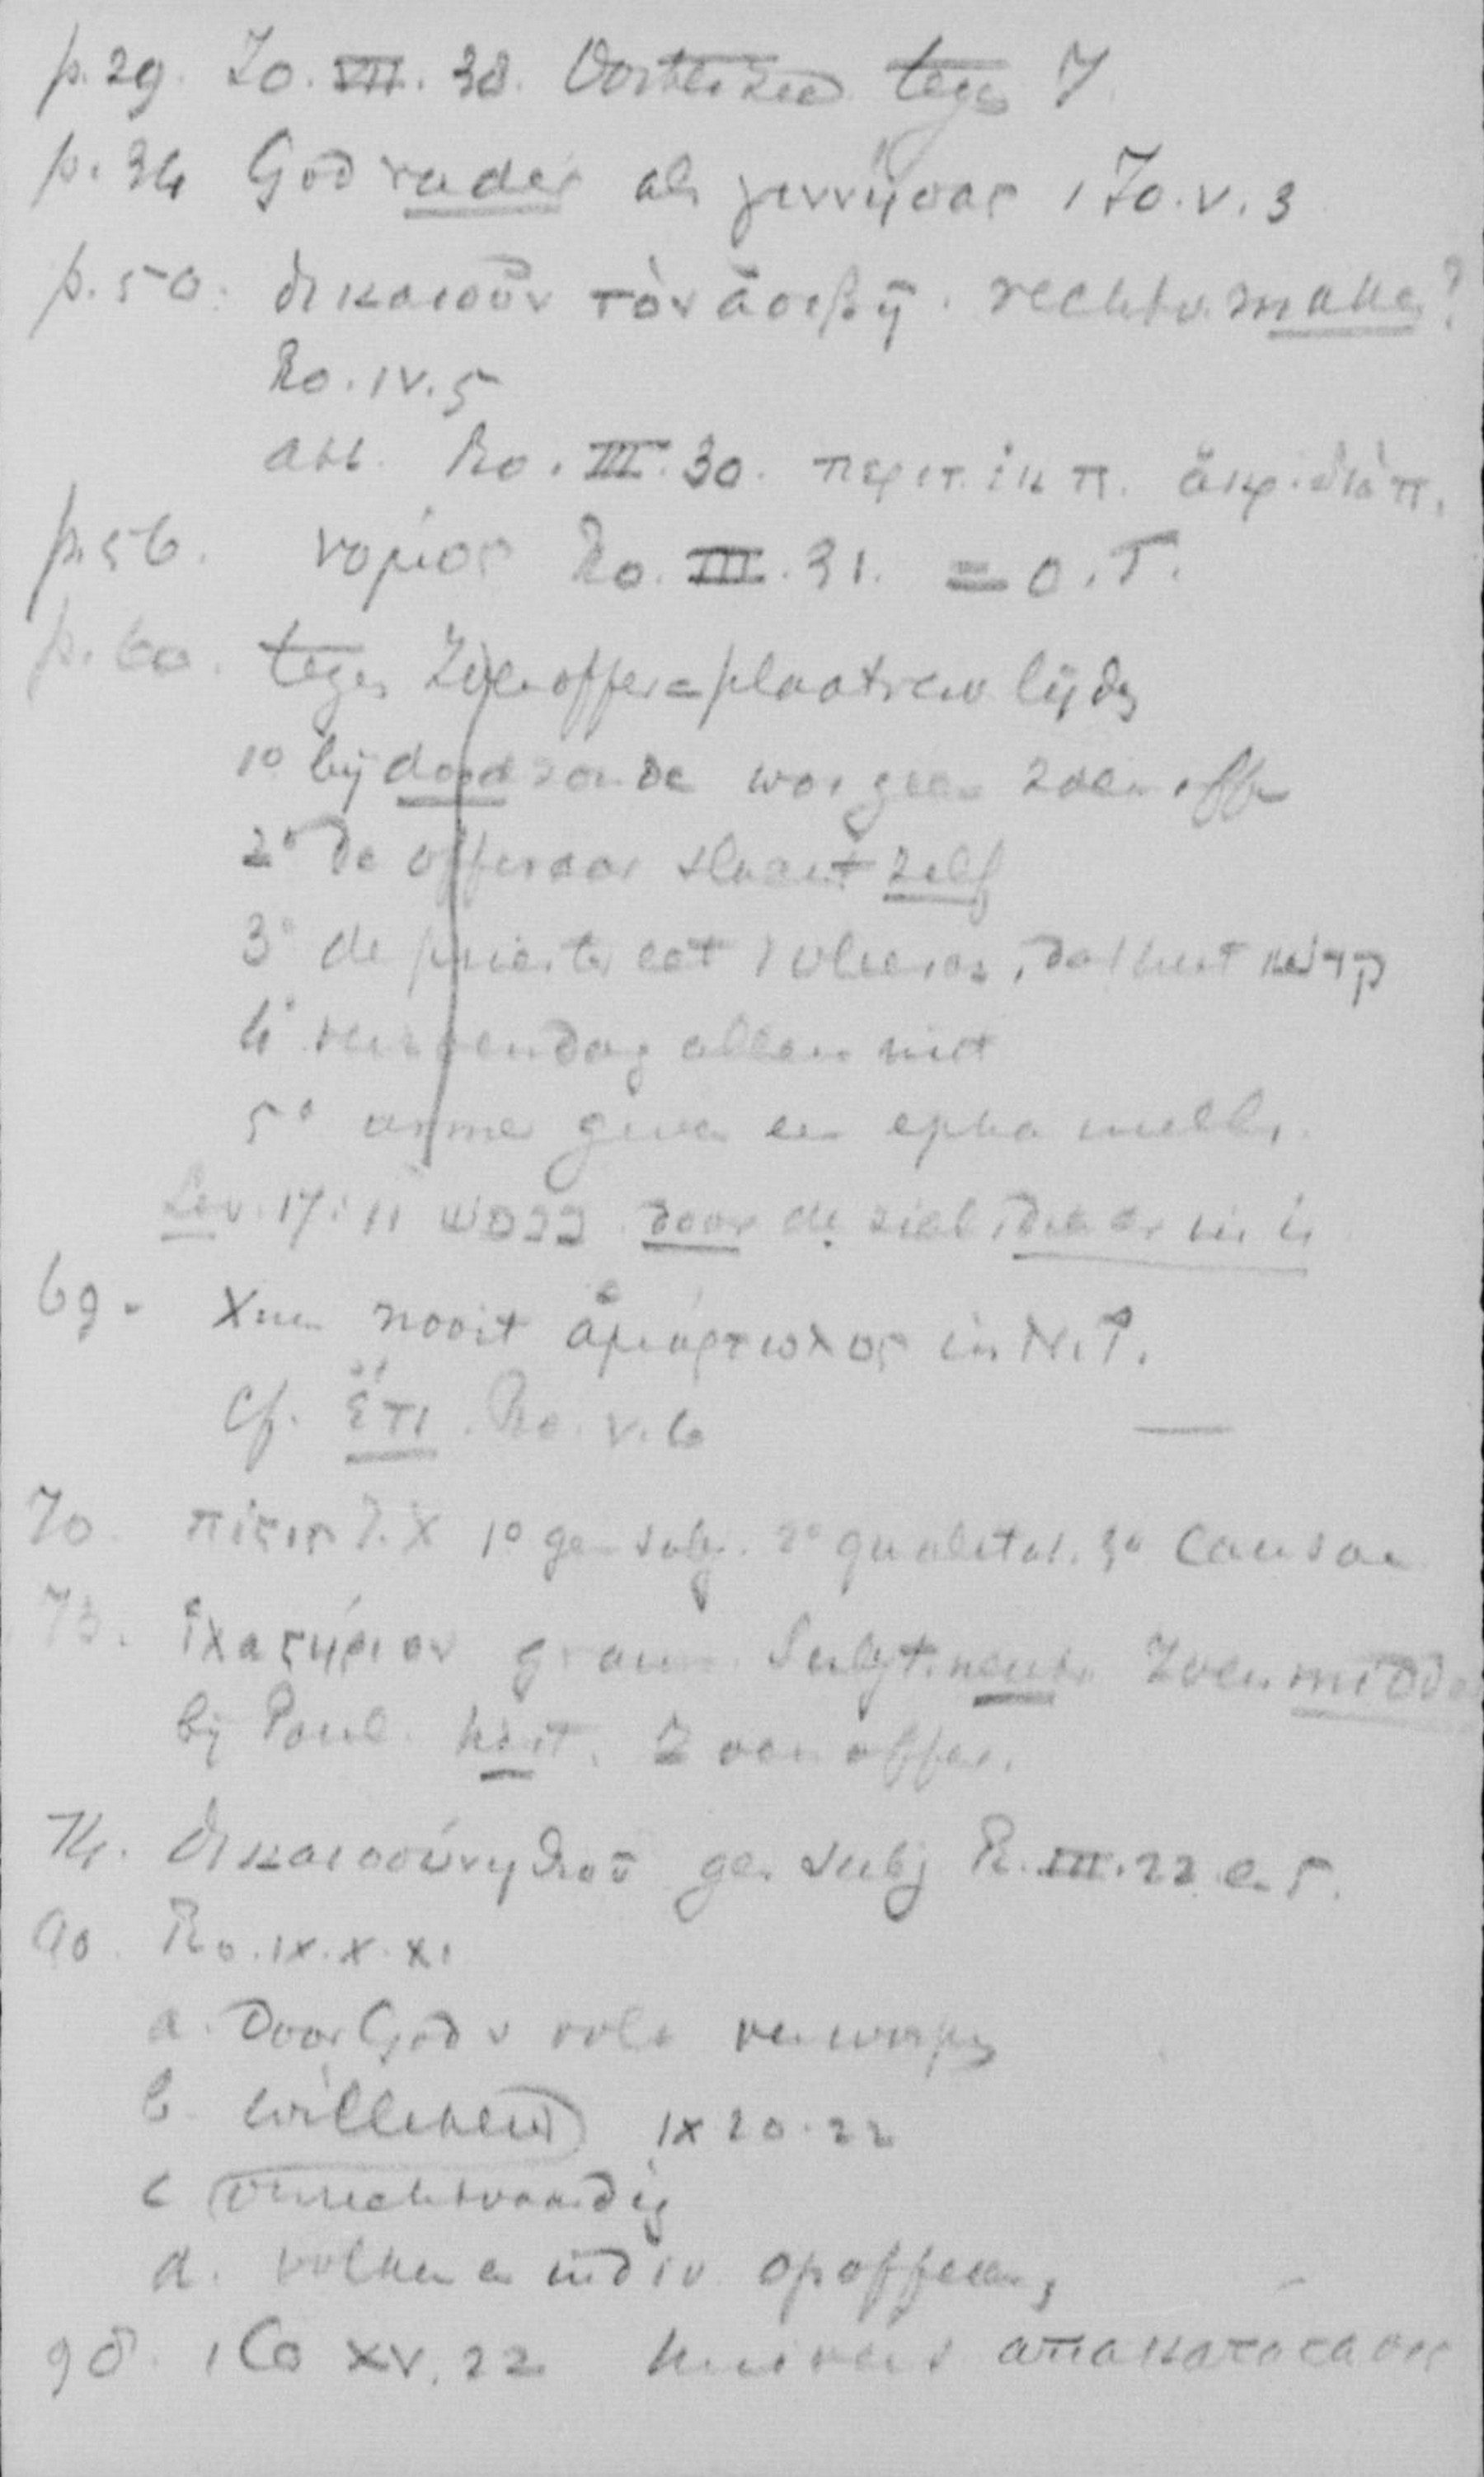 p. 29. Jo. VII. 38. Oosterzee tegen J
p. 34 God vader als γεννήσας 1 Jo. V. 3
p. 50. δικαιοῦν τὸν ἀσεβῆ. rechtv. maken?
Ro. IV. 5
Ro. III. 30. περιτ. ἐκ π. ἀκρ. διὰ π.
p. 56. νομος Ro. III. 31. = O. T.
p. 60. tegen Zoenoffer = plaatsverv. lijden
1° bij doodzonde was geen zoenoffer
2° de offeraar slacht zelf
3° de priester eet 't vleesch, dat heet קדש
4° verzoendag alleen niet
5° armen geven een epha meel.
Lev. 17:11 בנפש door de ziel die er in is
69. Xnen nooit ἁμάρτωλος in N. T.
Cf. ἔτι. Ro. V. 6
70. πίστις Ἰ. Χ 1° gen subj. 2° qualitat. 3° causae
73. ἱλαστήριον gram. Subst. neutr. Zoenmiddel
bij Paul. hist. Zoenoffer.
74. δικαιοσύνη θεοῦ gen subj R. III. 22 en 5.
90. Ro. IX. X. XI
a. Door God 's volk verworpen
b. willekeur IX 20. 22
c onrechtvaardig
d. volken en indiv. opoffering
98. 1 Co XV. 22 αποκαταστασις